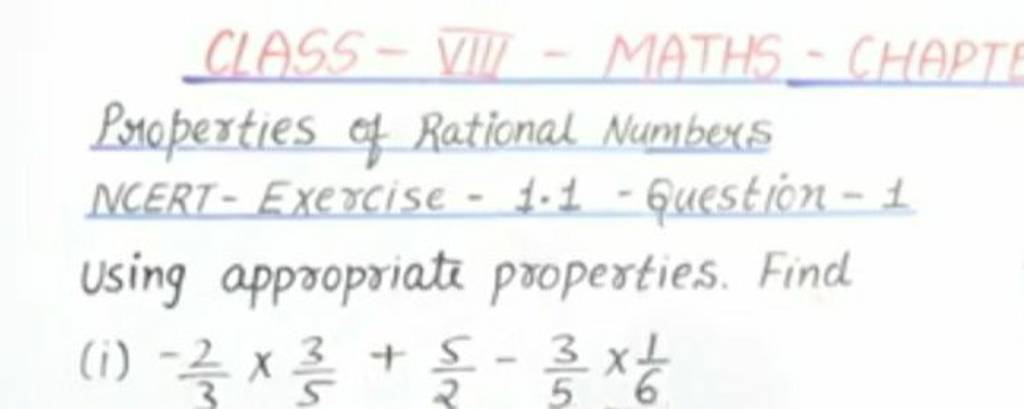 CLASS - VIII - MATHS - CHAPTE
Properties of Rational Numbers
NCERT - Exercise - 1.1 - Question - 1
Using appropriate properties. Find
(i) -2/3 x 3/5 + 5/2 - 3/5 x 1/6